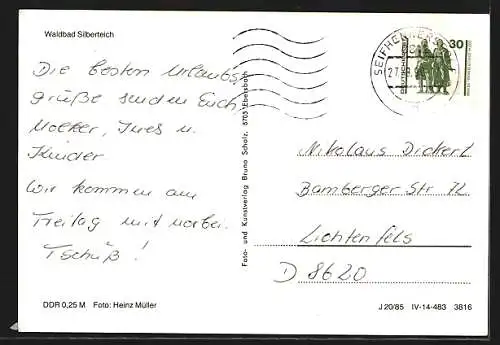 Waldbad Silberteich
Die besten Urlaubs
grüße senden Euch
Volker, Ines u.
Kinder
Wir kommen am
Freitag mit vorbei.
Tschüß!
DDR 0,25 M Foto: Heinz Müller
Foto- und Kunstverlag Bruno Scholz, 8705 Ebersbach
SEIFHENNERSDORF
30
Nikolaus Dickert
Bamberger Str 72
Lichtenfels
D 8620
J 20/85 IV-14-483 3816